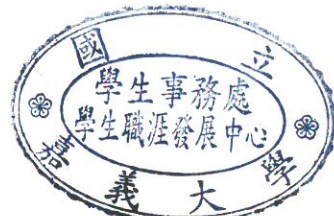 國立
嘉義大學
學生事務處
學生職涯發展中心